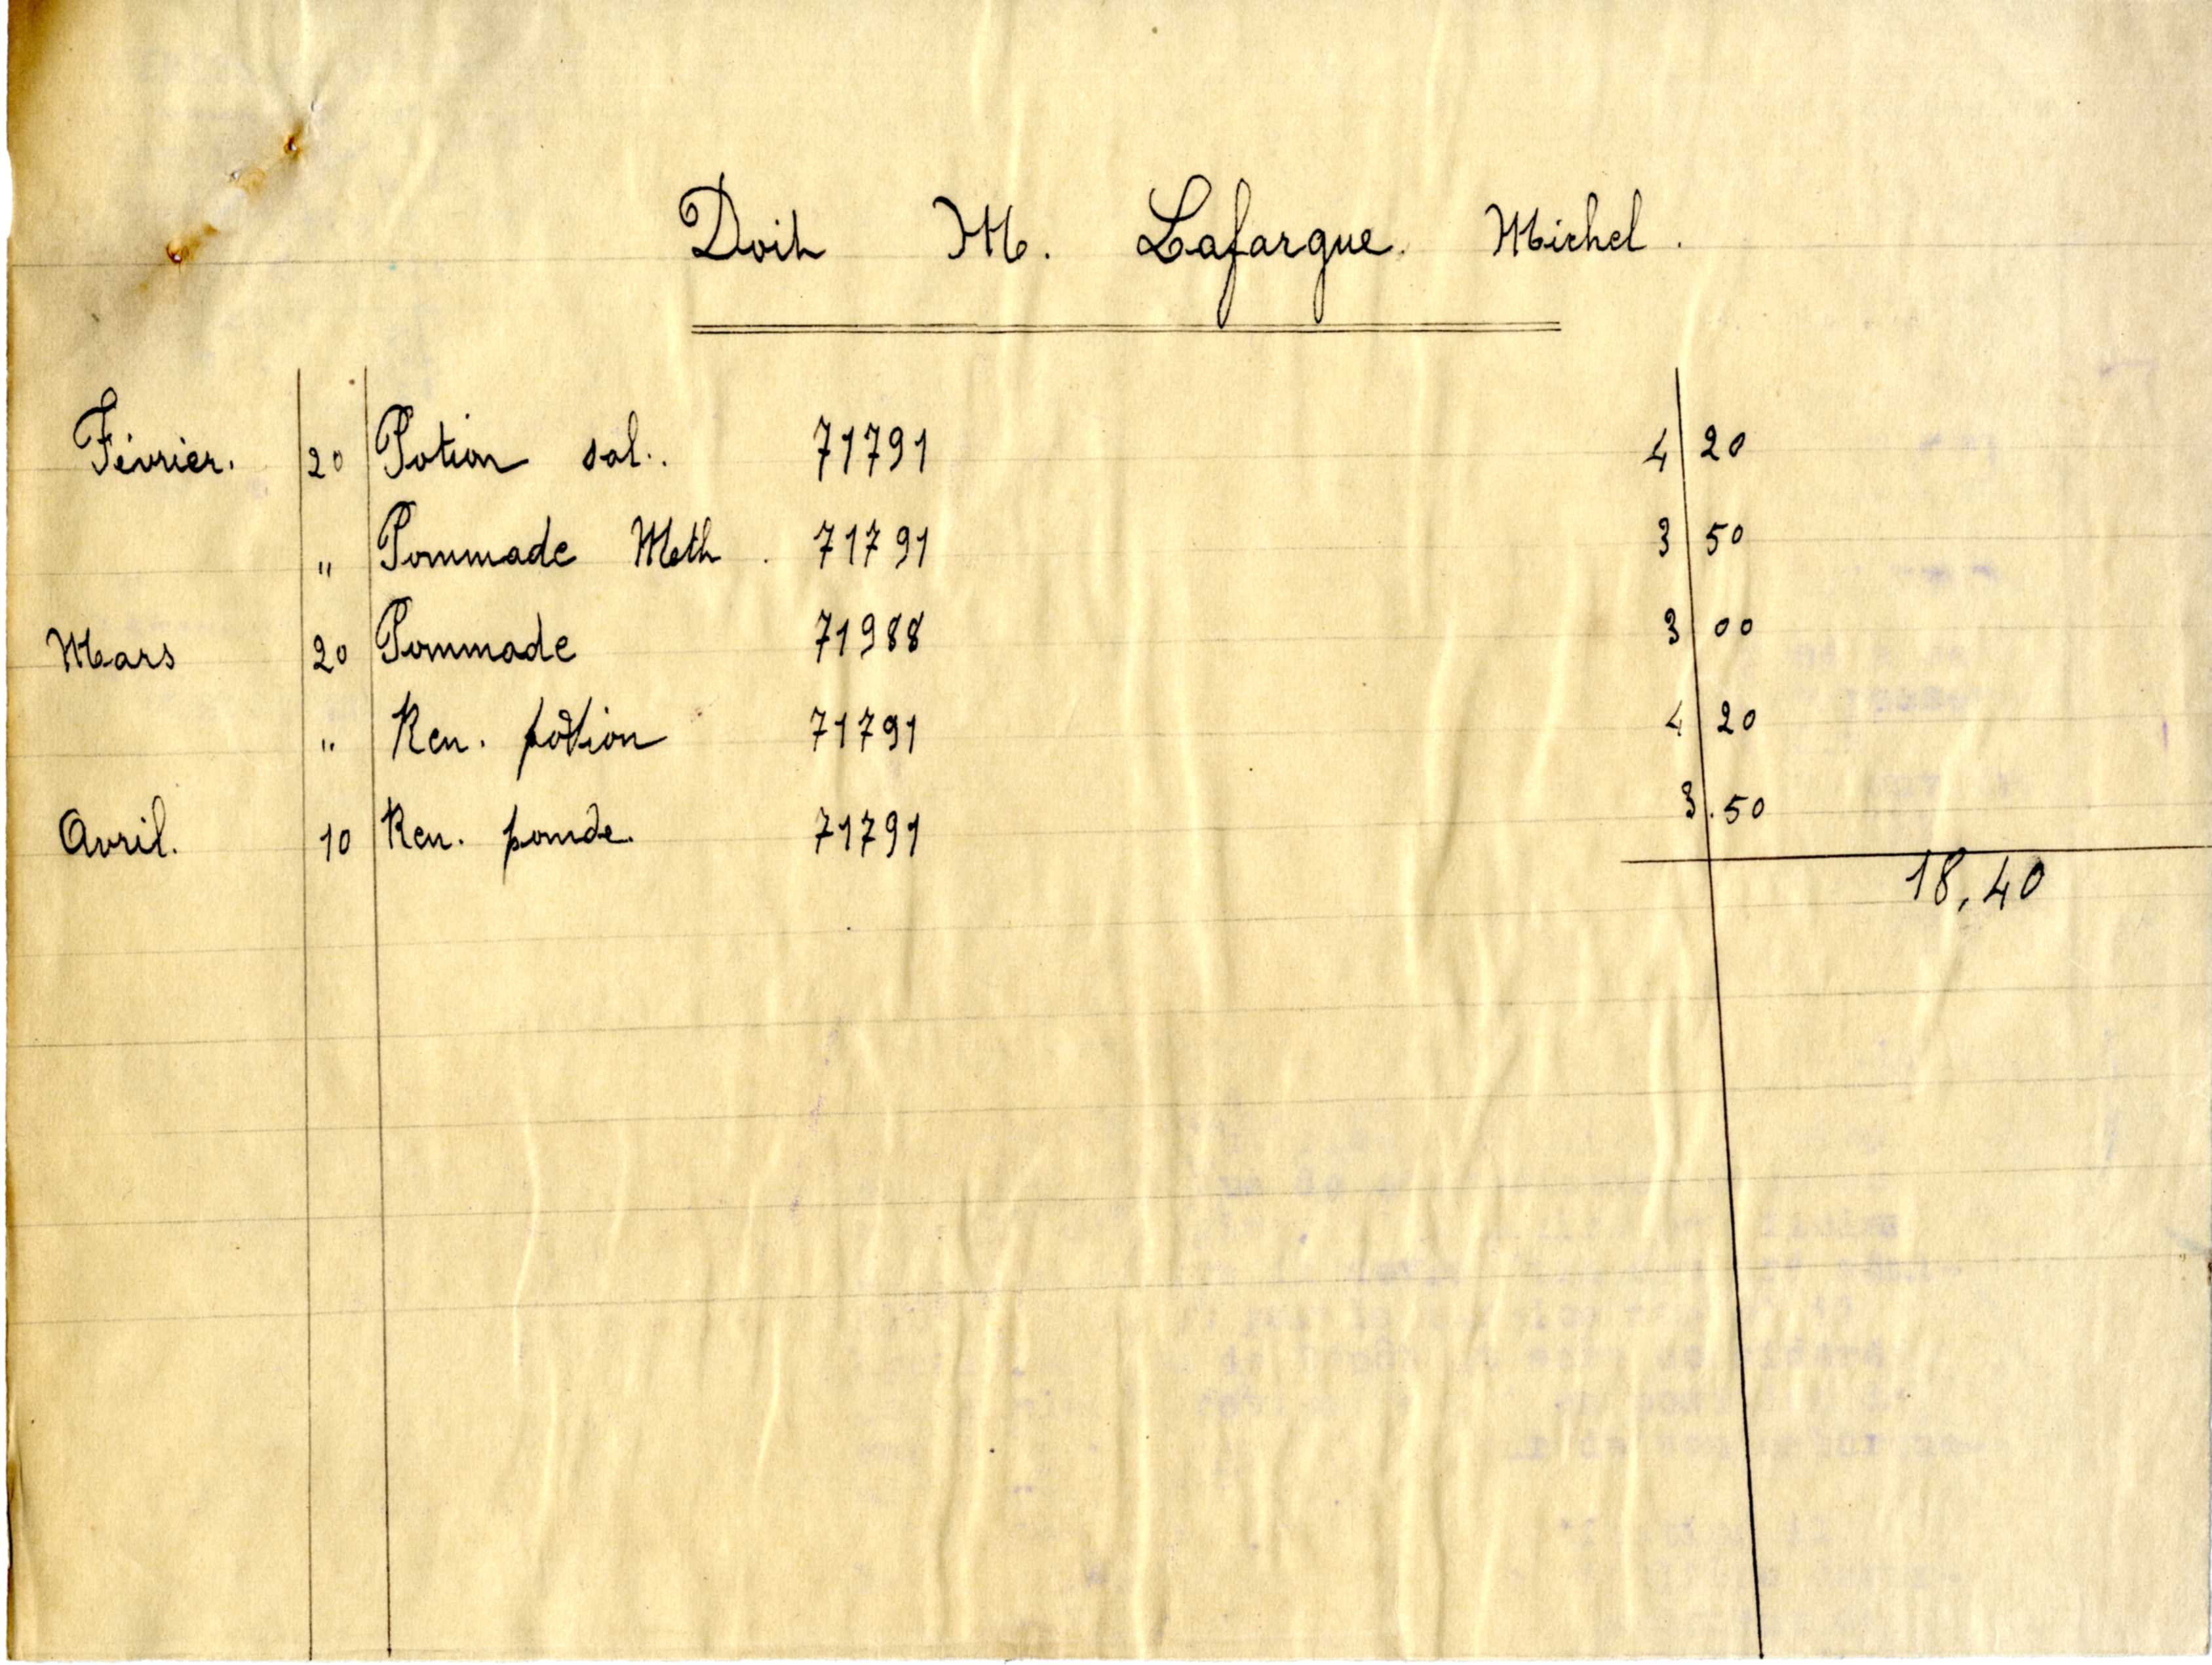 Doit M. Lafargue Michel.
Février. 20 Potion sal. 71791 4 20
" Pommade Meth. 71791 3 50
Mars 20 Pommade 71988 3 00
" Ren. potion 71791 4 20
Avril. 10 Ren. pomde. 71791 3.50
18,40